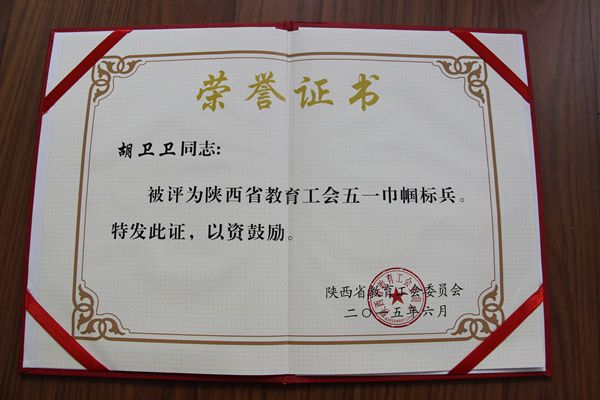 荣誉证书
胡卫卫同志:
被评为陕西省教育工会五一巾帼标兵。
特发此证，以资鼓励。
陕西省教育工会委员会
二〇一五年六月